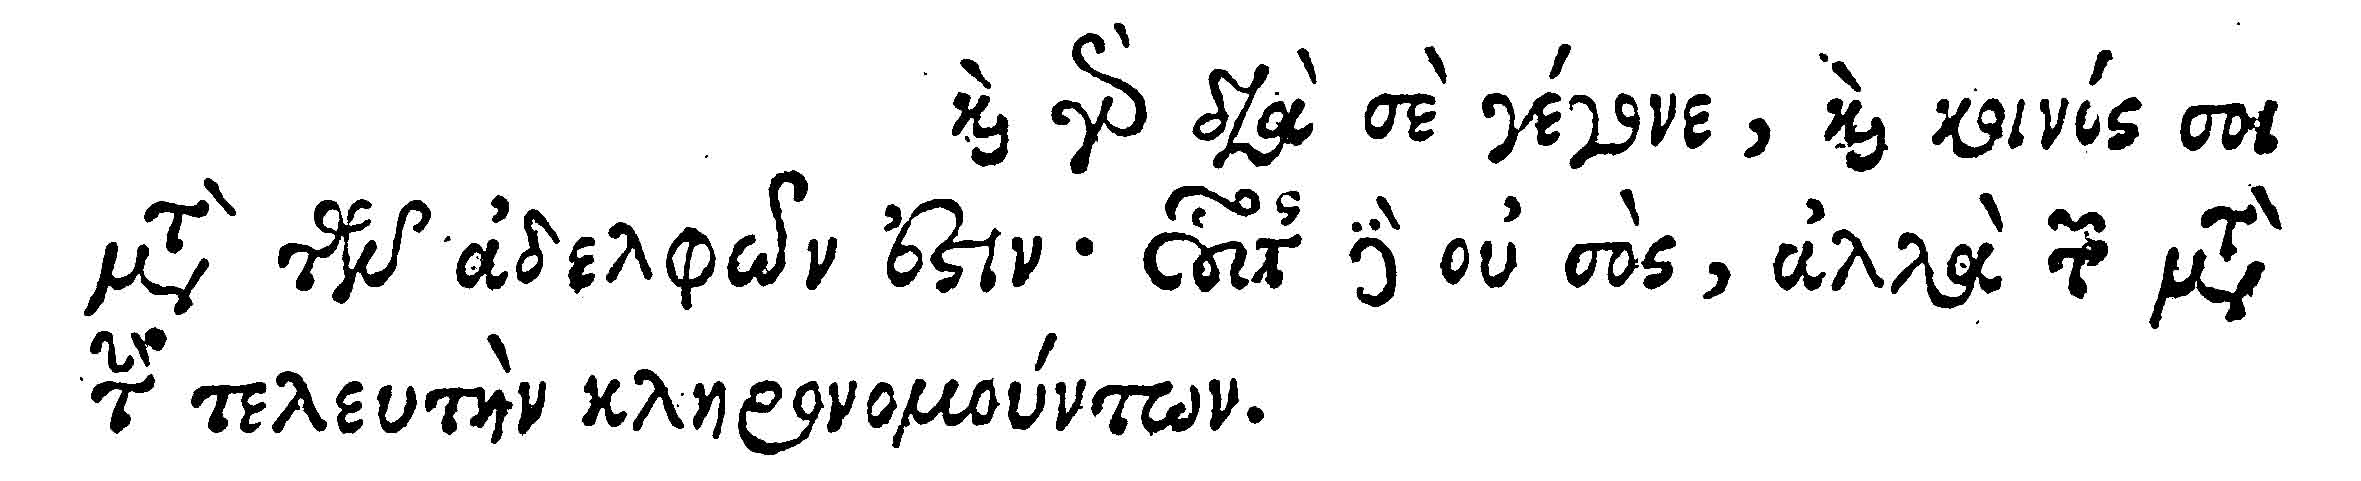 καὶ γὰρ διὰ σὲ γέγονε, καὶ κοινός σοι
μετὰ τῶν ἀδελφῶν ἐστιν· οὗτος δὲ οὐ σὸς, ἀλλὰ τῶν μετὰ
τὴν τελευτὴν κληρονομούντων.